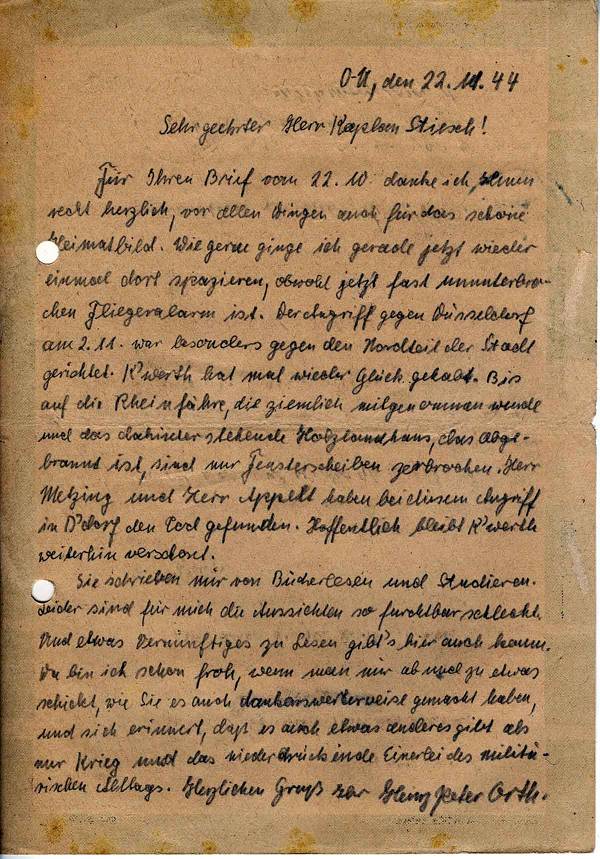 O.U., den 22.11.44
Sehr geehrter Herr Kaplan Stiesch!
Für Ihren Brief vom 22.10. danke ich Ihnen
recht herzlich, vor allen Dingen auch für das schöne
Heimatbild. Wie gerne ginge ich gerade jetzt wieder
einmal dort spazieren, obwohl jetzt fast ununterbro-
chen Fliegeralarm ist. Der Angriff gegen Düsseldorf
am 2.11. war besonders gegen den Nordteil der Stadt
gerichtet. K'werth hat mal wieder Glück gehabt. Bis
auf die Rheinfähre, die ziemlich mitgenommen wurde
und das dahinter stehende Holzlandhaus, das abge-
brannt ist, sind nur Fensterscheiben zerbrochen. Herr
Metzing und Herr Appelt haben bei diesem Angriff
in D'dorf den Tod gefunden. Hoffentlich bleibt K'werth
weiterhin verschont.
Sie schrieben mir von Bücherlesen und Studieren.
Leider sind für mich die Aussichten so furchtbar schlecht.
Und etwas Vernünftiges zu Lesen gibt's hier auch kaum.
Da bin ich schon froh, wenn man mir ab und zu etwas
schickt, wie Sie es auch dankenswerterweise gemacht haben,
und sich erinnert, daß es auch etwas anderes gibt als
nur Krieg und das niederdrückende Einerlei des militä-
rischen Alltags. Herzlichen Gruß Heinz Peter Orth.